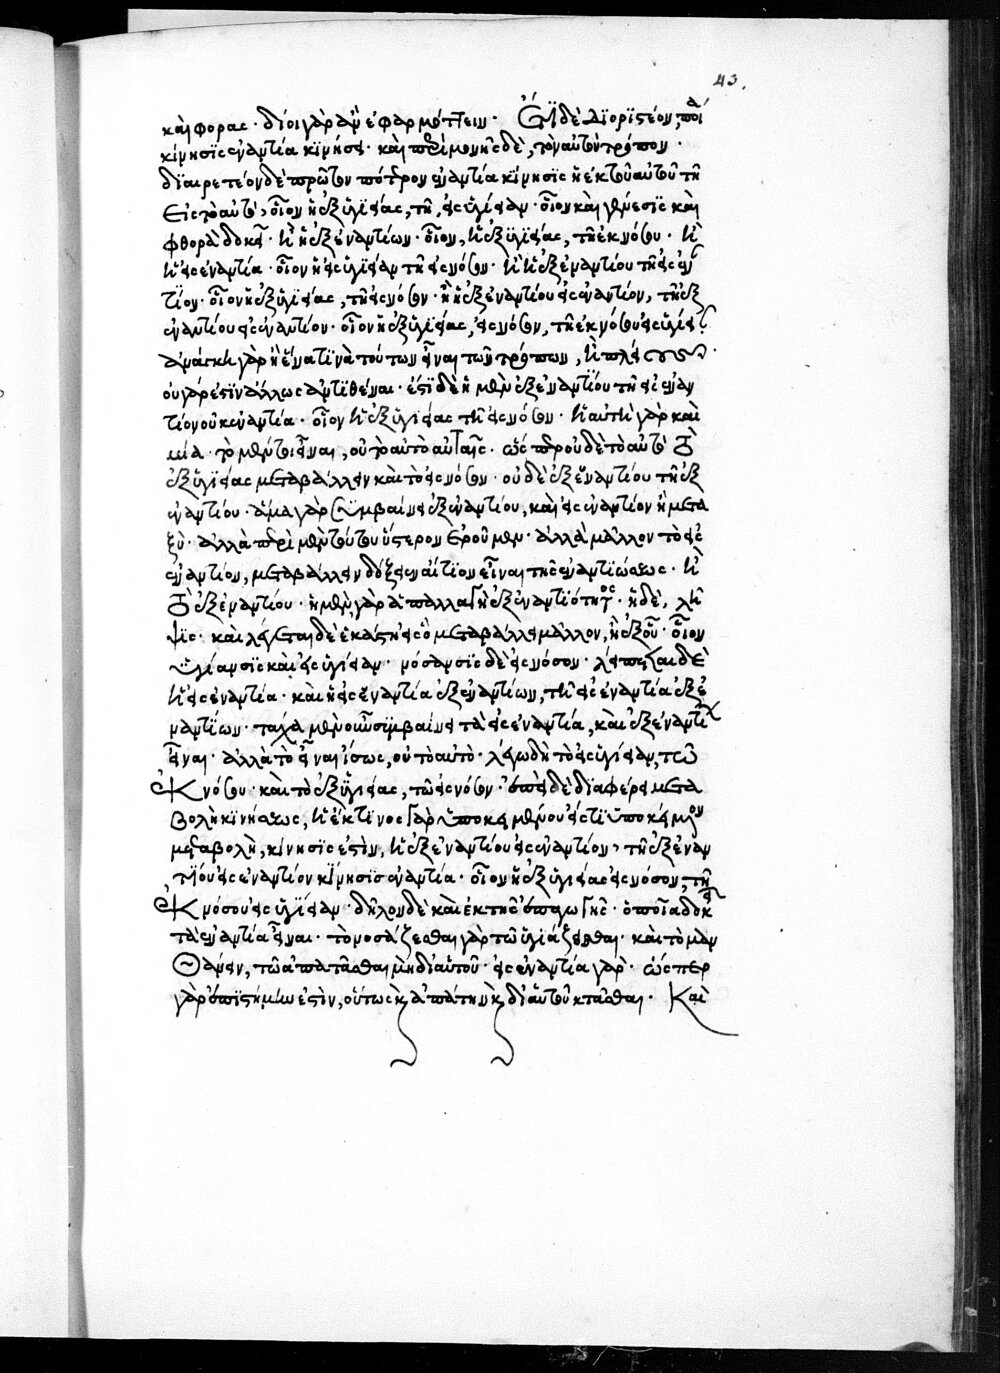 καὶ φορας · δίοι γὰρ ἂν ἐφαρμόττειν · Ἔτι δὲ διοριστέον, ποία
κίνησις ἐναντία κινήσει · καὶ περὶ μονῆς δὲ, τὸν αὐτὸν τρόπον ·
διαιρετέον δὲ πρῶτον πότερον ἐναντία κίνησις ἡ ἐκ τοῦ αὐτοῦ τῇ
εἰς τὸ αὐτό, οἷον ἡ ἐξ ὑγιείας, τῇ εἰς ὑγίειαν · οἷον καὶ γένεσις καὶ
φθορὰ δοκεῖ · ἢ ἡ ἐξ ἐναντίων · οἷον, ἡ ἐξ ὑγιείας, τῇ ἐκ νόσου · ἢ
ἡ εἰς ἐναντία · οἷον ἡ εἰς ὑγίειαν τῇ εἰς νόσον · ἢ ἡ ἐξ ἐναντίου τῇ εἰς ἐναν
τίον · οἷον ἡ ἐξ ὑγιείας, τῇ εἰς νόσον · ἢ ἡ ἐξ ἐναντίου εἰς ἐναντίον, τῇ ἐξ
ἐναντίου εἰς ἐναντίον · οἷον ἡ ἐξ ὑγιείας, εἰς νόσον, τῇ ἐκ νόσου εἰς ὑγίειαν
ἀνάγκη γὰρ ἢ ἕνα τινὰ τούτων εἶναι τῶν τρόπων, ἢ πλείους ·
οὐ γάρ ἐστιν ἄλλως ἀντιθέναι · ἔστι δὲ ἡ μὲν ἐξ ἐναντίου τῇ εἰς ἐναν
τίον οὐκ ἐναντία · οἷον ἡ ἐξ ὑγιείας τῇ εἰς νόσον · ἡ αὐτὴ γὰρ καὶ
μία · τὸ μέντοι εἶναι, οὐ τὸ αὐτὸ αὐταῖς · ὥσπερ οὐδὲ τὸ αὐτὸ τὸ
ἐξ ὑγιείας μεταβάλλειν καὶ τὸ εἰς νόσον · οὐδὲ ἐξ ἐναντίου τῇ ἐξ
ἐναντίου · ἅμα γὰρ συμβαίνει ἐξ ἐναντίου, καὶ εἰς ἐναντίον ἢ μετα
ξύ · ἀλλὰ περὶ μὲν τούτου ὕστερον ἐροῦμεν · ἀλλὰ μᾶλλον τὸ εἰς
ἐναντίον, μεταβάλλειν δόξειεν αἴτιον εἶναι τῆς ἐναντιώσεως · ἢ
τὸ ἐξ ἐναντίου · ἡ μὲν γὰρ ἀπαλλαγὴ ἐξ ἐναντιότητος · ἡ δὲ, λῆ
ψις · καὶ λέγεται δὲ ἑκάστη εἰς ὃ μεταβάλλει μᾶλλον, ἢ ἐξ οὗ · οἷον
ὑγίανσις καὶ εἰς ὑγίειαν · νόσανσις δὲ εἰς νόσον · λείπεται δὲ
ἡ εἰς ἐναντία · καὶ ἡ εἰς ἐναντία ἐξ ἐναντίων, τῇ εἰς ἐναντία ἐξ ἐ
ναντίων · τάχα μὲν οὖν συμβαίνει τὰ εἰς ἐναντία, καὶ ἐξ ἐναντίων
εἶναι · ἀλλὰ τὸ εἶναι ἴσως, οὐ τὸ αὐτό · λέγω δὴ τὸ εἰς ὑγίειαν, τῶ
ἐκ νόσου · καὶ τὸ ἐξ ὑγιείας, τῶ εἰς νόσον · ἐπεὶ δὲ διαφέρει μετα
βολὴ κινήσεως, ἡ ἐκ τινος γὰρ ὑποκειμένου εἴς τι ὑποκείμενον
μεταβολὴ, κίνησίς ἐστιν, ἡ ἐξ ἐναντίου εἰς ἐναντίον, τῇ ἐξ ἐναν
τίου εἰς ἐναντίον κίνησις ἐναντία · οἷον ἡ ἐξ ὑγιείας εἰς νόσον, τῇ
ἐκ νόσου εἰς ὑγίειαν · δῆλον δὲ καὶ ἐκ τῆς ἐπαγωγῆς · ὁποῖα δοκεῖ
τὰ ἐναντία εἶναι · τὸ νοσάζεσθαι γὰρ τῶ ὑγιάζεσθαι · καὶ τὸ μαν
θάνειν, τῶ ἀπατᾶσθαι μὴ δι' αὑτοῦ · εἰς ἐναντία γάρ · ὥσπερ
γὰρ ἐπιστήμην ἐστὶν, οὕτως κ ἀπάτην κ δι' αὑτοῦ κτᾶσθαι · Καὶ